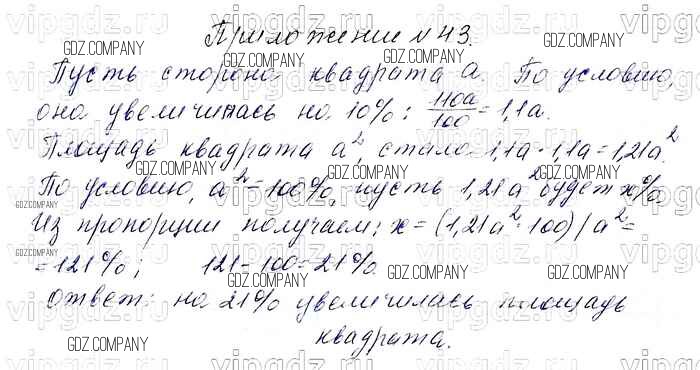 Приложение №43.
Пусть сторона квадрата a. По условию,
она увеличилась на 10%: 110a/100 = 1,1a.
Площадь квадрата a², стало 1,1a · 1,1a = 1,21a².
По условию, a² = 100%, пусть 1,21a² будет x%.
Из пропорции получаем: x = (1,21a² · 100) / a² =
= 121%; 121 - 100 = 21%
Ответ: на 21% увеличилась площадь
квадрата.
GDZ.COMPANY
vipgdz.ru